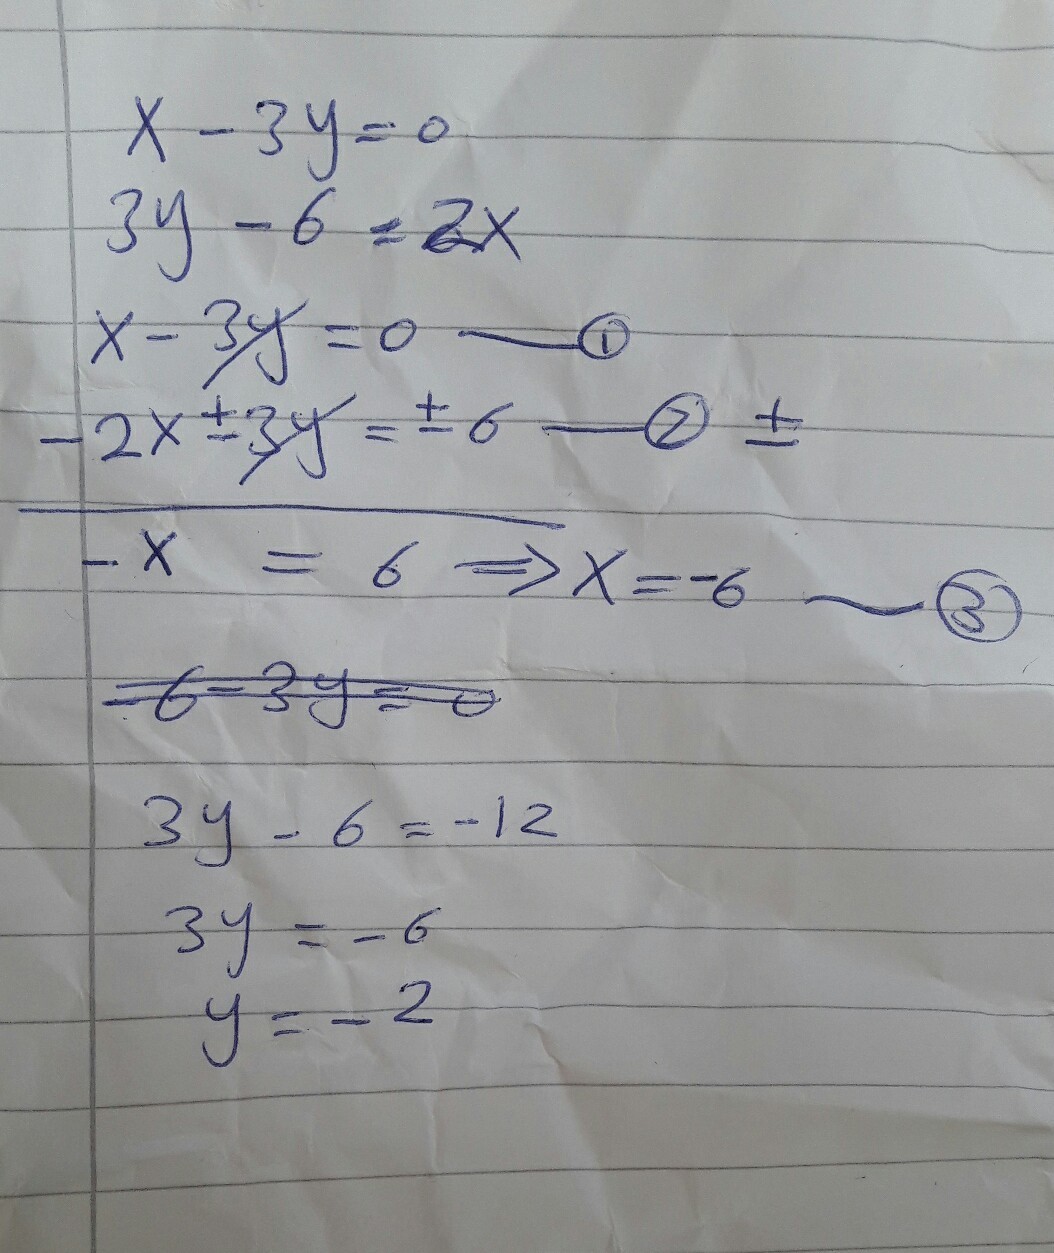 x - 3y = 0
3y - 6 = 2x
x - 3y = 0 — ①
-2x ± 3y = ± 6 — ② ±
-x = 6 ⇒ x = -6 — ③
-6 - 3y = 0
3y - 6 = -12
3y = -6
y = -2